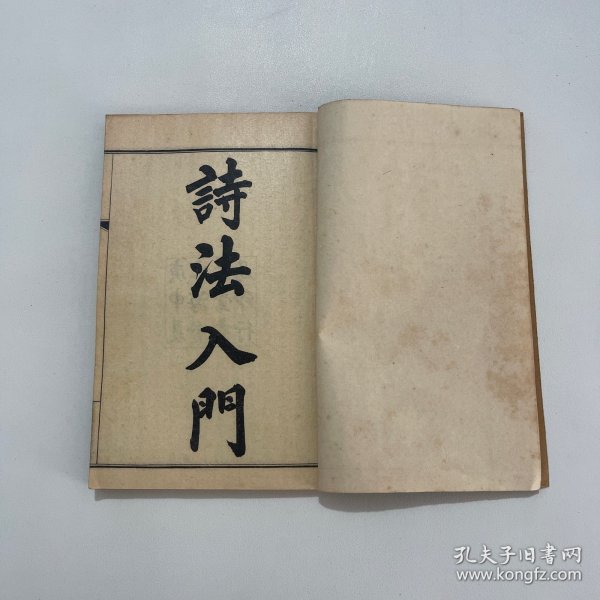 詩法入門
孔夫子旧書网
www.kongfz.com